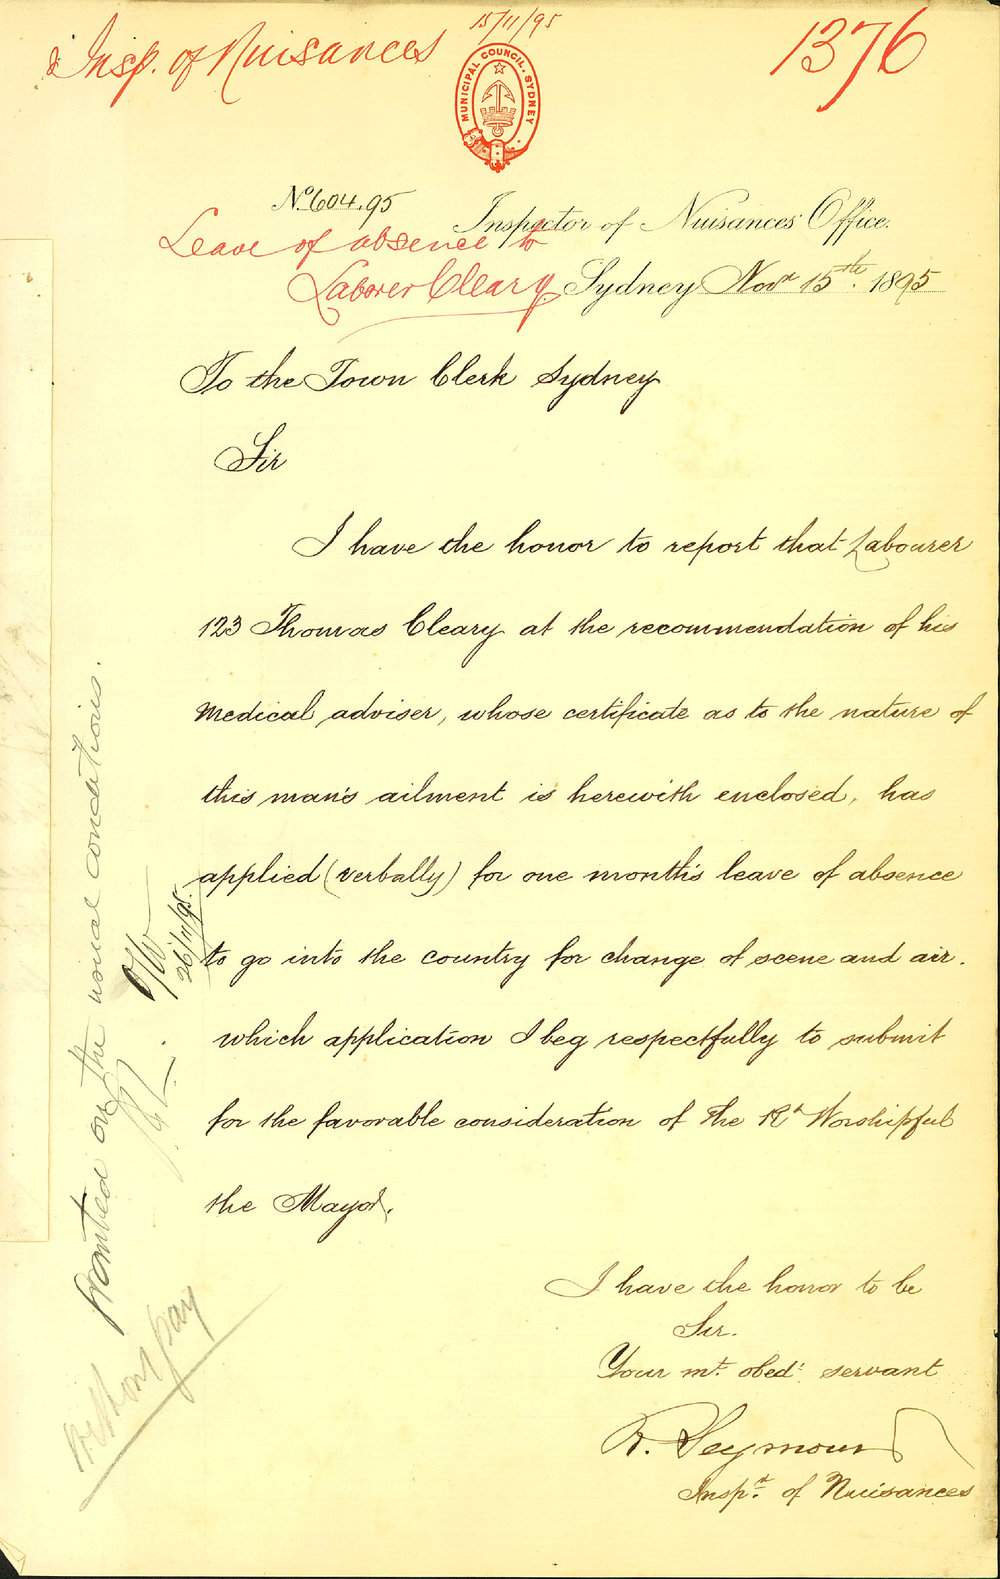 15/11/95
Insp. of Nuisances
1376
MUNICIPAL COUNCIL. SYDNEY
No. 604.95
Inspector of Nuisances' Office.
Leave of absence to
Laborer Cleary
Sydney Novr 15th. 1895
To the Town Clerk Sydney
Sir
I have the honor to report that Labourer
123 Thomas Cleary at the recommendation of his
medical adviser, whose certificate as to the nature of
this man's ailment is herewith enclosed, has
applied (verbally) for one month's leave of absence
to go into the country for change of scene and air.
which application I beg respectfully to submit
for the favorable consideration of the Rt Worshipful
the Mayor.
I have the honor to be
Sir.
Your mt. obedt servant
R. Seymour
Inspr. of Nuisances
Granted on the usual conditions.
26/11/95.
without pay